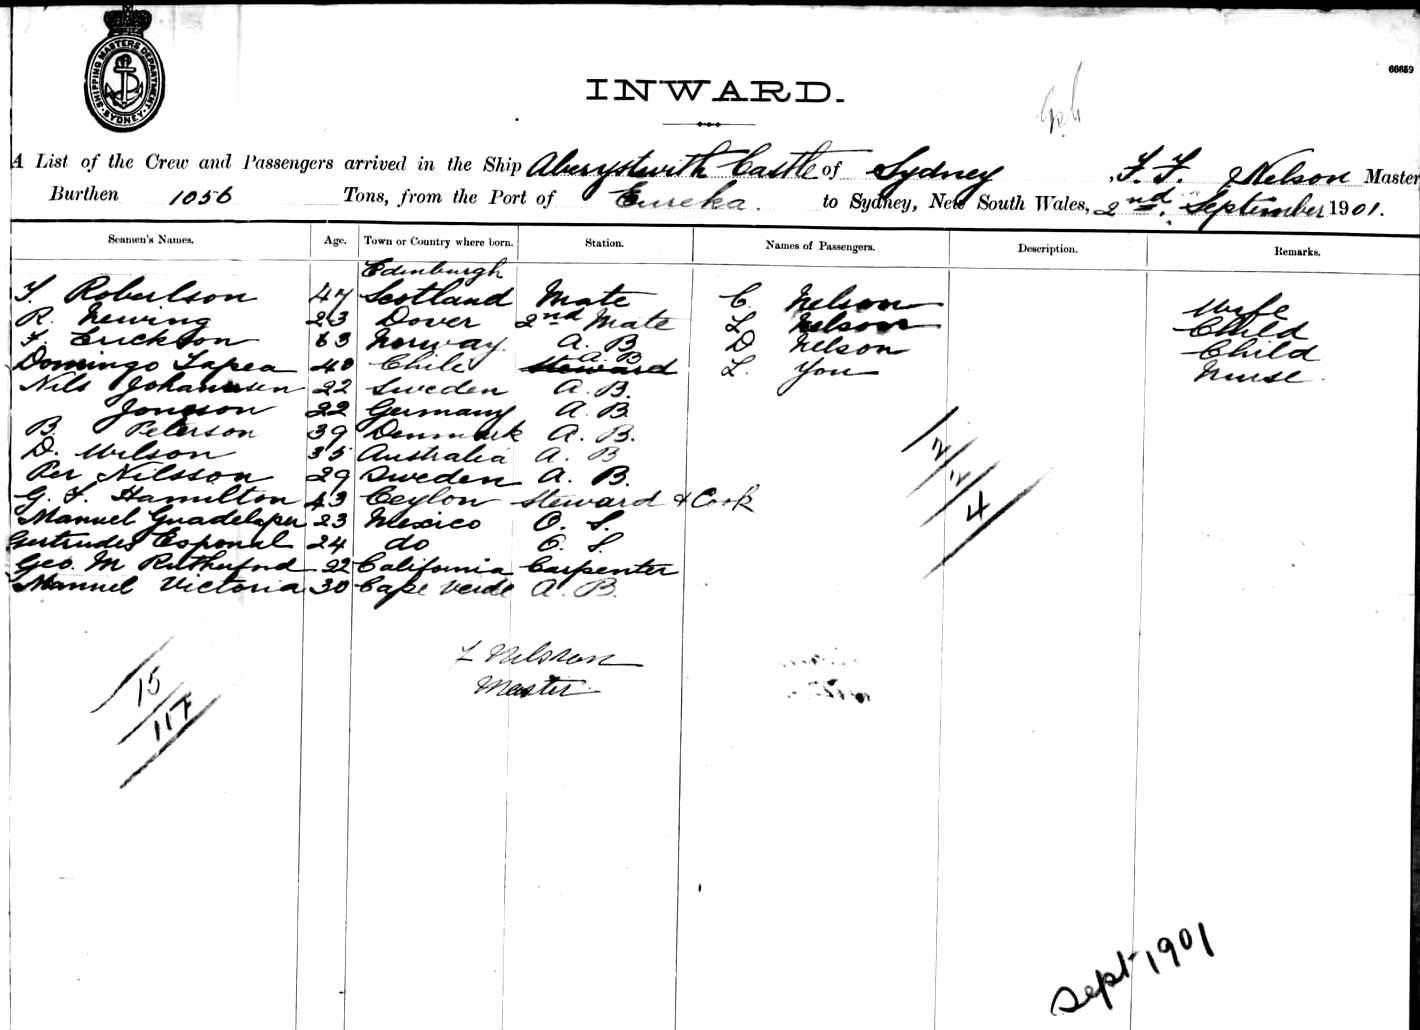 SHIPPING MASTERS DEPARTMENT
SYDNEY
66659
INWARD.
A List of the Crew and Passengers arrived in the Ship Aberystwith Castle of Sydney, F. F. Nelson Master
Burthen 1056 Tons, from the Port of Eureka. to Sydney, New South Wales, 2nd. September 1901.
Seamen's Names. Age. Town or Country where born. Station. Names of Passengers. Description. Remarks.
Edinburgh
Robertson 47 Scotland Mate C. Nelson Wife
R. Newing 23 Dover 2nd Mate L. Nelson Child
F. Erickson 63 Norway A. B D Nelson Child
A. B
Domingo Tapea 40 Chile Steward L. You Nurse
Nils Johansen 22 Sweden A. B.
Jonsson 22 Germany A. B
B. Peterson 39 Denmark A. B.
D. Wilson 35 Australia A. B
Per Nilsson 29 Sweden A. B.
G. F. Hamilton 43 Ceylon Steward & Cook
Manuel Guadelaper 23 Mexico O. S.
Gertrudes Esponal 24 do O. S.
Geo. M Rutherford 22 California Carpenter
Manuel Victoria 30 Cape Verde A. B.
2
2
4
Master
15
117
Sept 1901